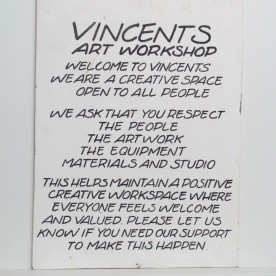 VINCENTS
ART WORKSHOP
WELCOME TO VINCENTS
WE ARE A CREATIVE SPACE
OPEN TO ALL PEOPLE
WE ASK THAT YOU RESPECT
THE PEOPLE
THE ARTWORK
THE EQUIPMENT
MATERIALS AND STUDIO
THIS HELPS MAINTAIN A POSITIVE
CREATIVE WORKSPACE WHERE
EVERYONE FEELS WELCOME
AND VALUED. PLEASE LET US
KNOW IF YOU NEED OUR SUPPORT
TO MAKE THIS HAPPEN.